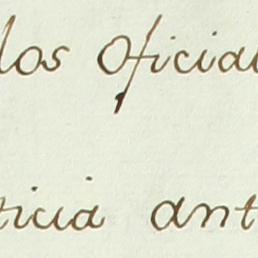 los oficial
ticia ant